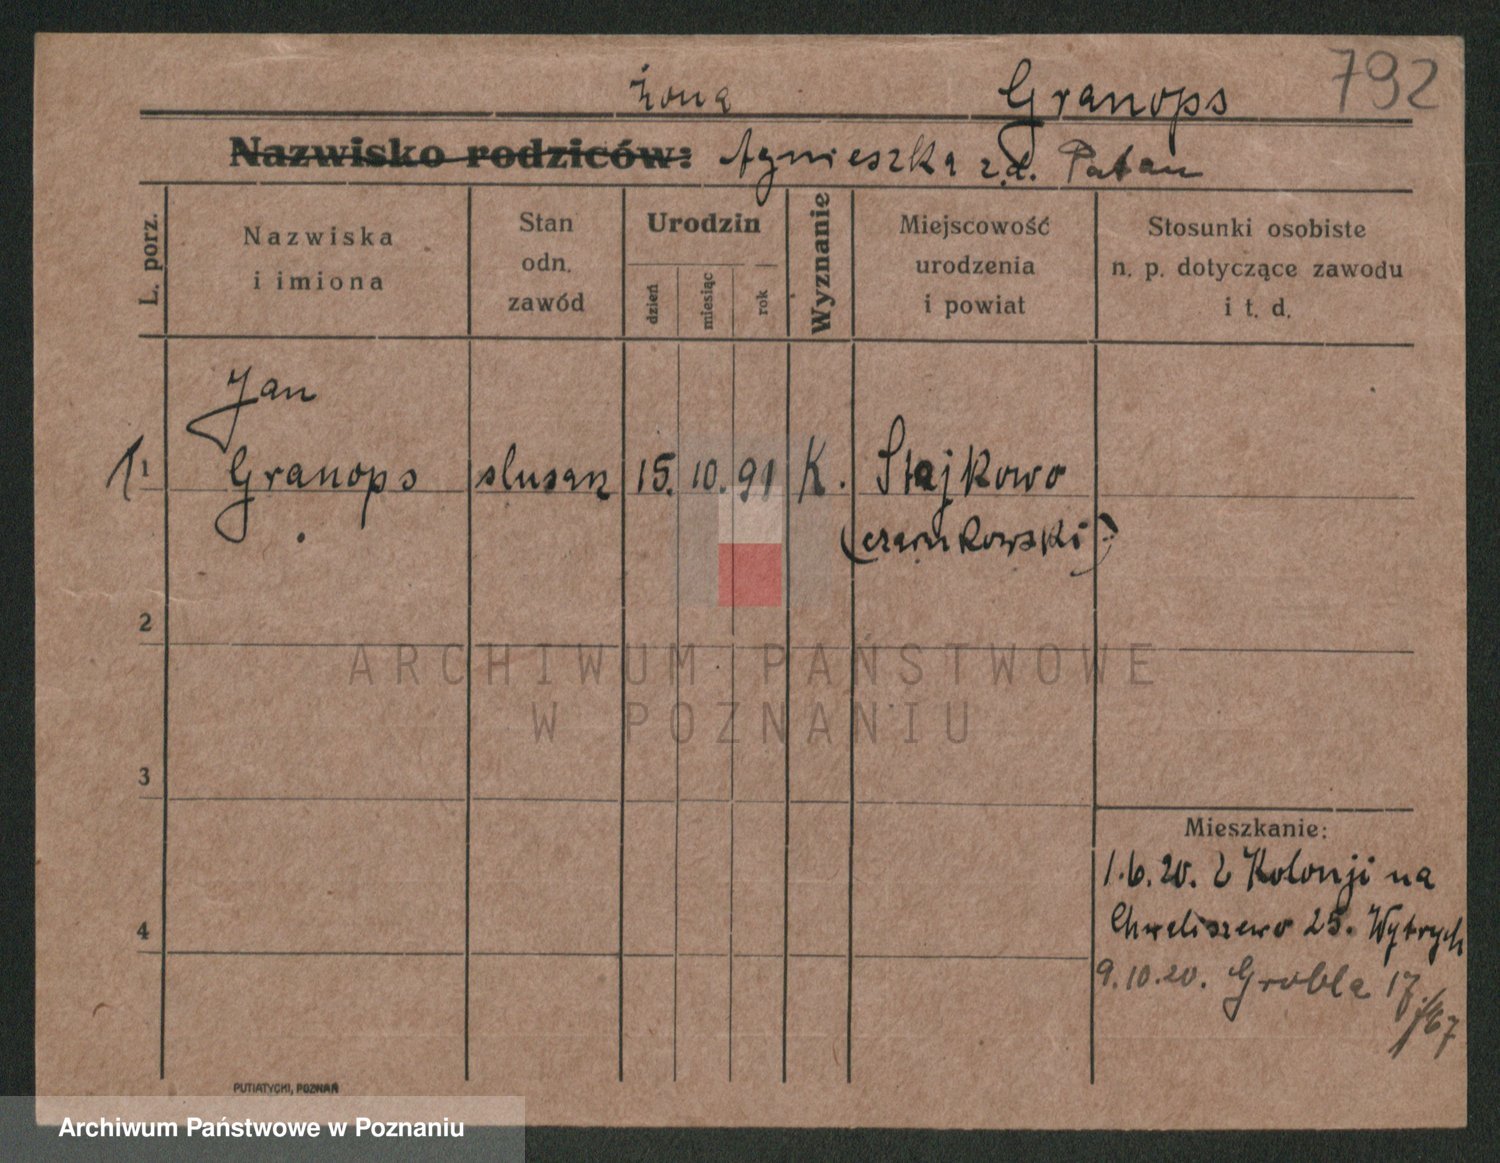 792
żona Granops
Nazwisko rodziców: Agnieszka z.d. Patan
L. porz.
Nazwiska
i imiona
Stan
odn.
zawód
Urodzin
dzień
miesiąc
rok
Wyznanie
Miejscowość
urodzenia
i powiat
Stosunki osobiste
n. p. dotyczące zawodu
i t. d.
Jan
1 1 Granops slusarz 15. 10. 91 K. Stajkowo
(czarnkowski)
2
ARCHIWUM PAŃSTWOWE
W POZNANIU
3
Mieszkanie:
1.6.20. z Kolonji na
4 Chwaliszewo 25. Wytrych
9.10.20. Grobla 17.
PUTIATYCKI, POZNAŃ
Archiwum Państwowe w Poznaniu